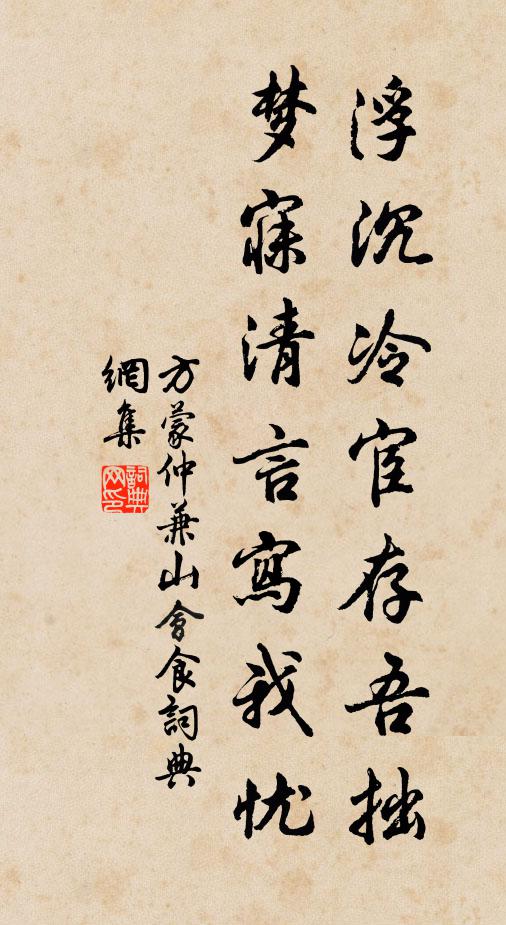 浮沉冷宦存吾拙
梦寐清言寫我忧
方蒙仲兼山會食詞典
網集
詞典
网印